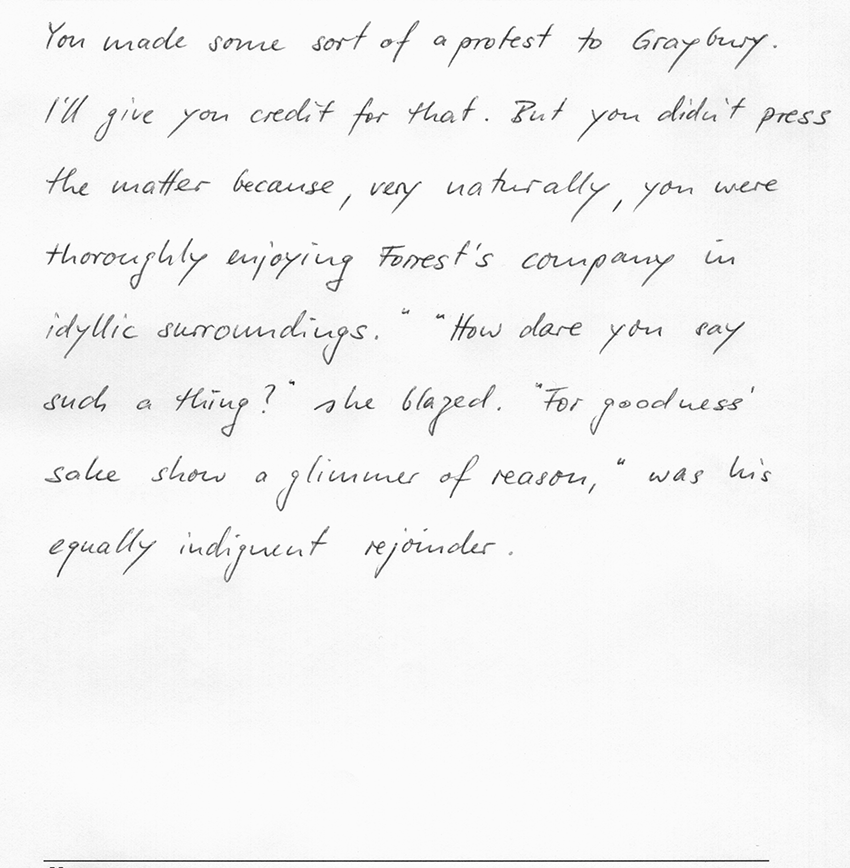 You made some sort of a protest to Graybury.
I'll give you credit for that. But you didn't press
the matter because, very naturally, you were
thoroughly enjoying Forrest's company in
idyllic surroundings." "How dare you say
such a thing?" she blazed. "For goodness'
sake show a glimmer of reason," was his
equally indignent rejoinder.